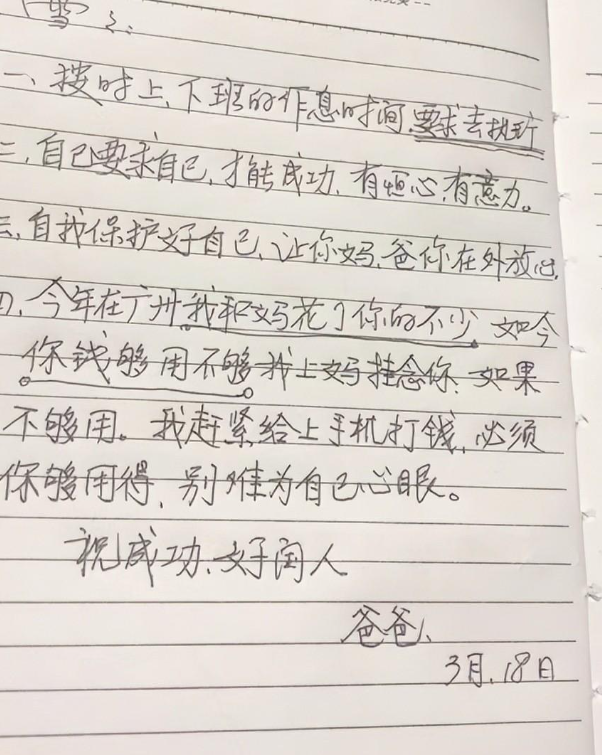 雪:
一、按时上、下班的作息时间,要求去执行
二,自己要求自己,才能成功,有恒心,有意力。
三,自我保护好自己,让你妈,爸你在外放心,
四,今年在广州我和妈花了你的不少,如今
你钱够用不够我上妈挂念你,如果
不够用。我赶紧给上手机打钱,必须
保够用得,别难为自己心眼。
祝成功、好闺人
爸爸、
3月,18日